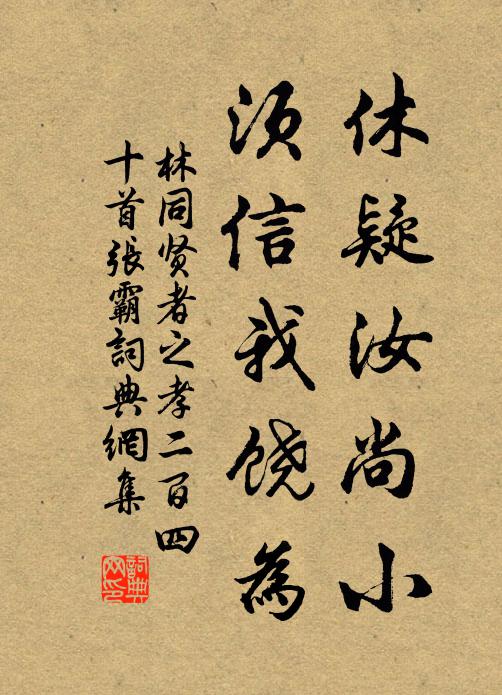 休疑汝尚小
须信我饶為
林同贤者之孝二百四
十首張霸詞典網集
詞典网印